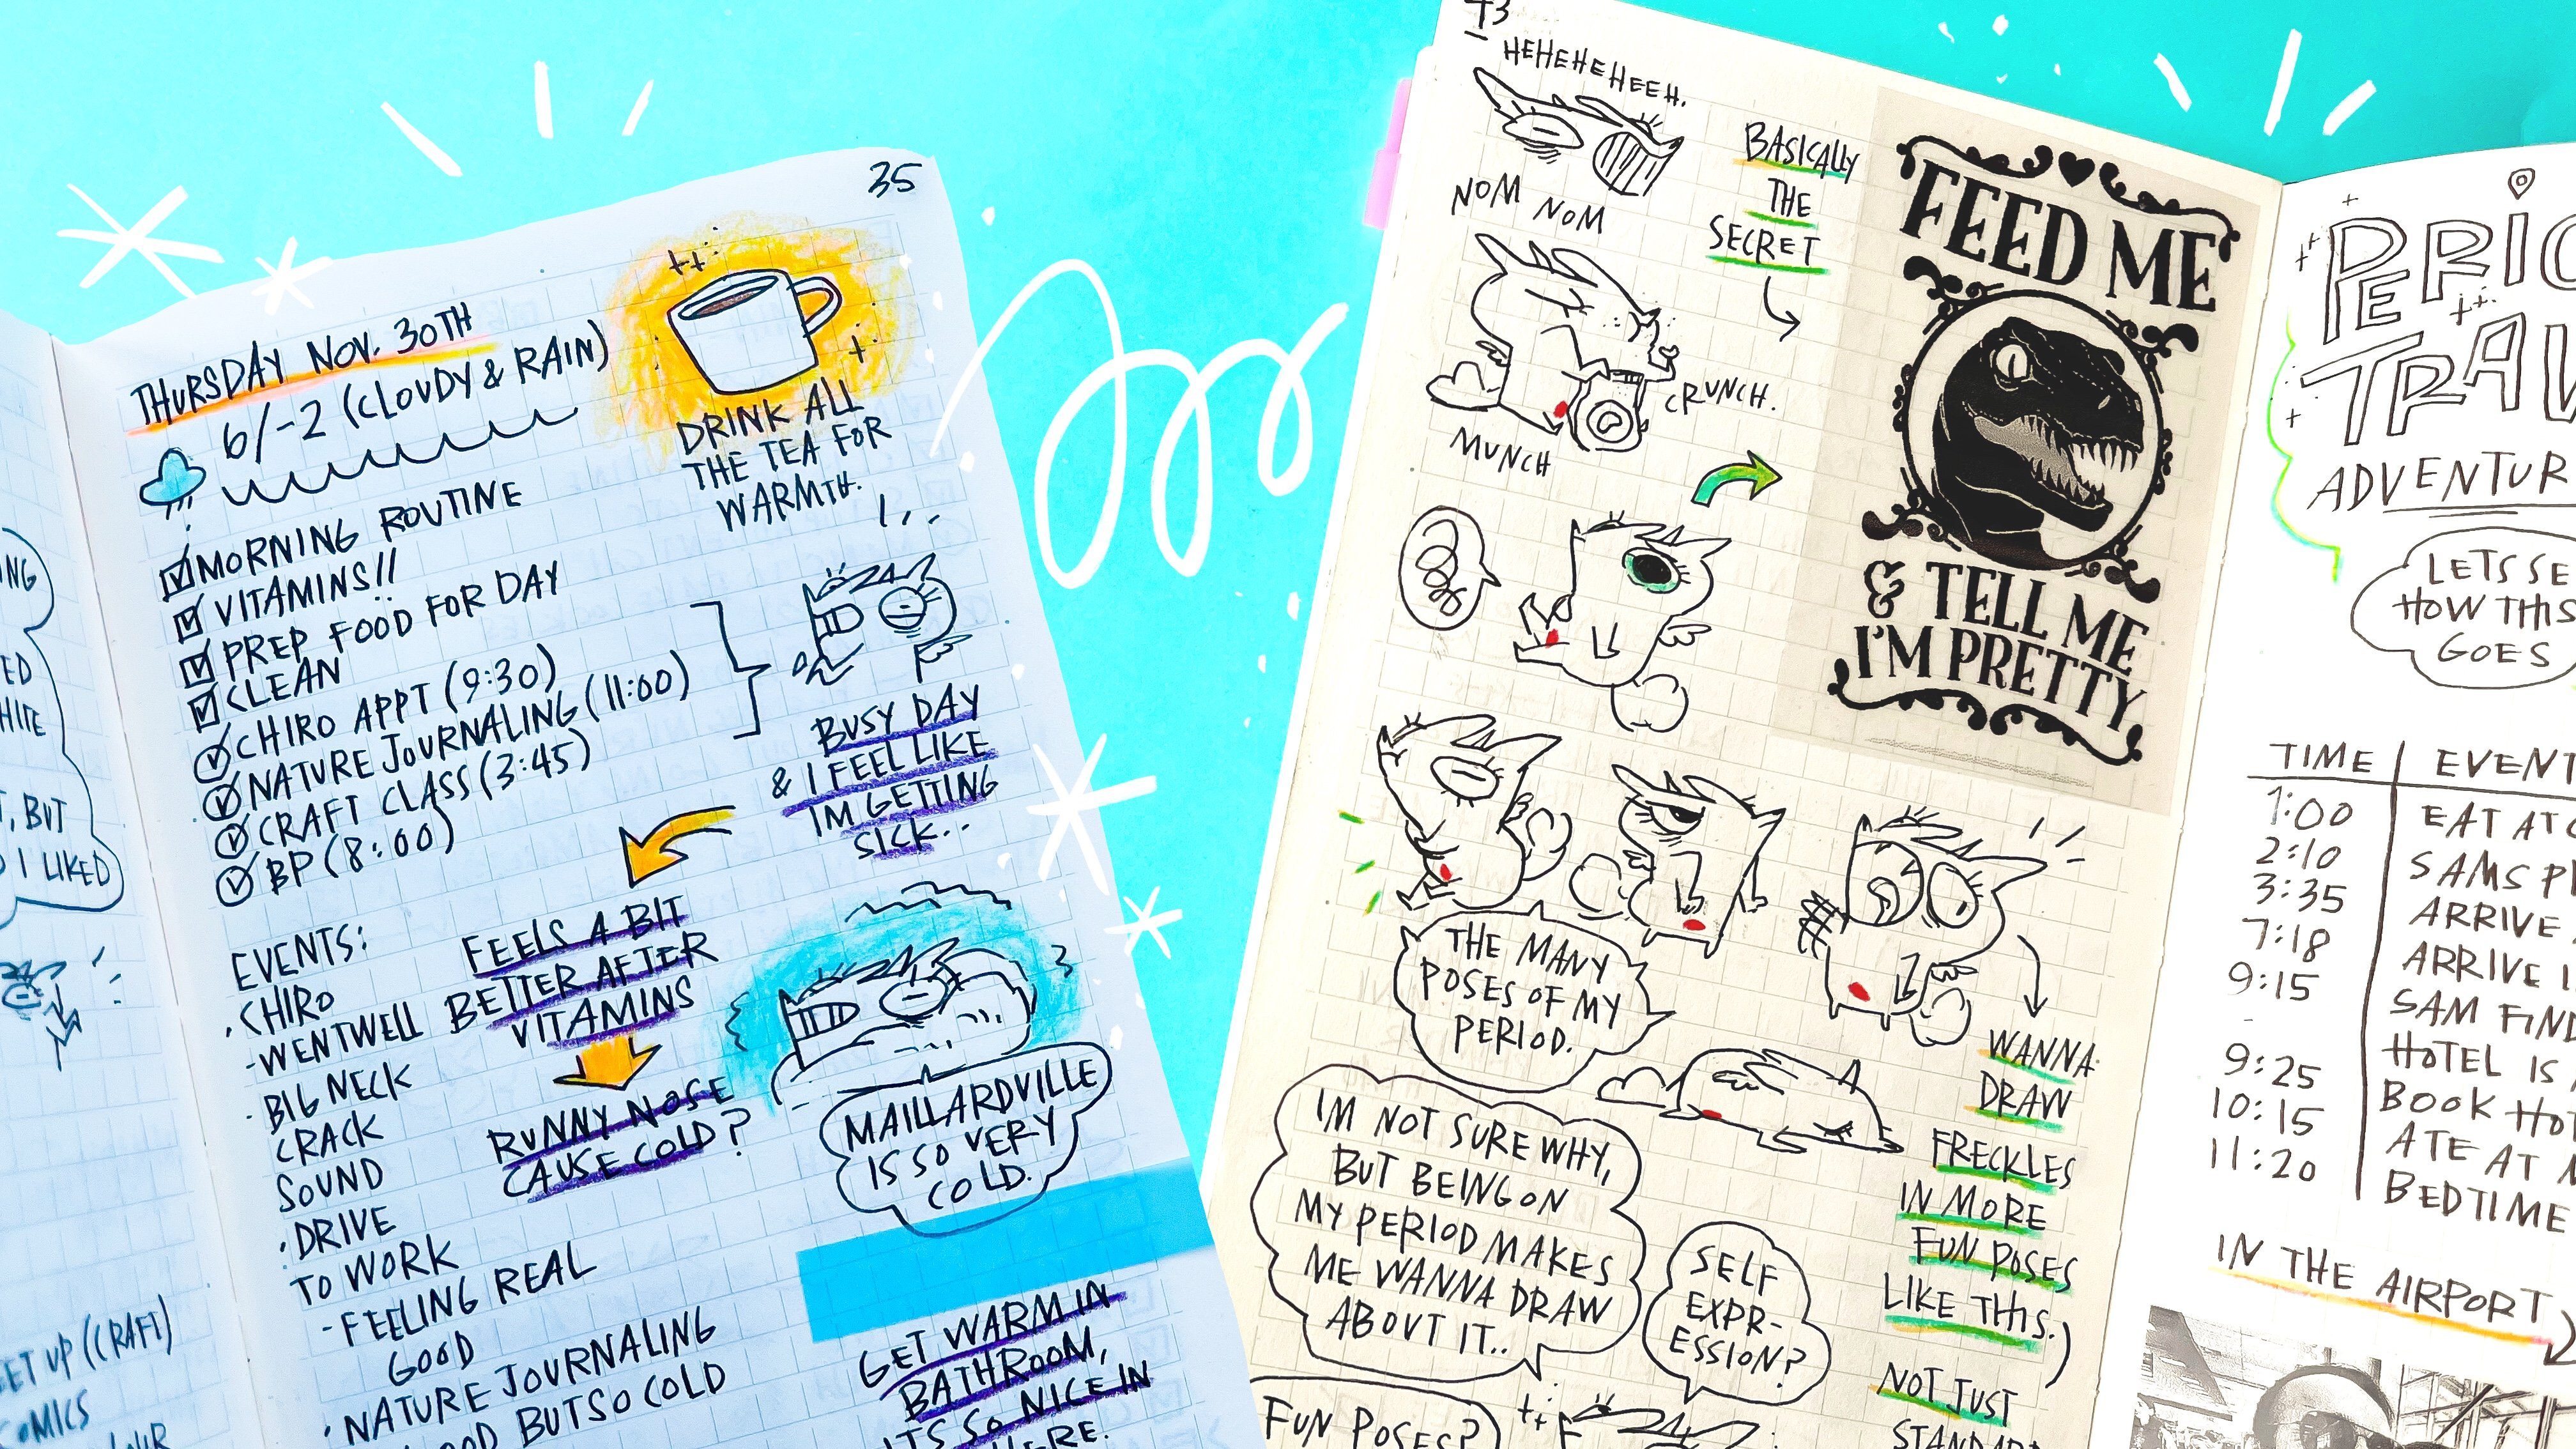 35
THURSDAY NOV. 30TH
6/-2 (CLOUDY & RAIN)
DRINK ALL
THE TEA FOR
WARMTH.
MORNING ROUTINE
VITAMINS!!
PREP FOOD FOR DAY
CLEAN
CHIRO APPT (9:30)
NATURE JOURNALING (11:00)
CRAFT CLASS (3:45)
BP (8:00)
BUSY DAY
& I FEEL LIKE
IM GETTING
SICK..
FEELS A BIT
BETTER AFTER
VITAMINS
RUNNY NOSE
CAUSE COLD?
EVENTS:
CHIRO
-WENTWELL
BIG NECK
CRACK
SOUND
DRIVE
TO WORK
-FEELING REAL
GOOD
NATURE JOURNALING
BUT SO COLD
MAILLARDVILLE
IS SO VERY
COLD.
GET WARM IN
BATHROOM,
ITS SO NICE IN
HERE.
, BUT
I LIKED
UP (CRAFT)
COMICS
HEHEHEHEEH.
NOM NOM
CRUNCH.
MUNCH
BASICALLY
THE
SECRET
FEED ME
& TELL ME
I'M PRETTY
THE MANY
POSES OF MY
PERIOD.
WANNA
DRAW
FRECKLES
IN MORE
FUN POSES
LIKE THIS.)
NOT JUST
IM NOT SURE WHY,
BUT BEING ON
MY PERIOD MAKES
ME WANNA DRAW
ABOUT IT..
SELF
EXPR-
ESSION?
FUN POSES?
LETS SE
HOW THIS
GOES
TIME EVENT
1:00 EAT AT
2:10 SAMS
3:35 ARRIVE
7:18 ARRIVE
9:15 SAM FIND
HOTEL IS
9:25 BOOK
10:15 ATE AT
11:20 BEDTIME
IN THE AIRPORT